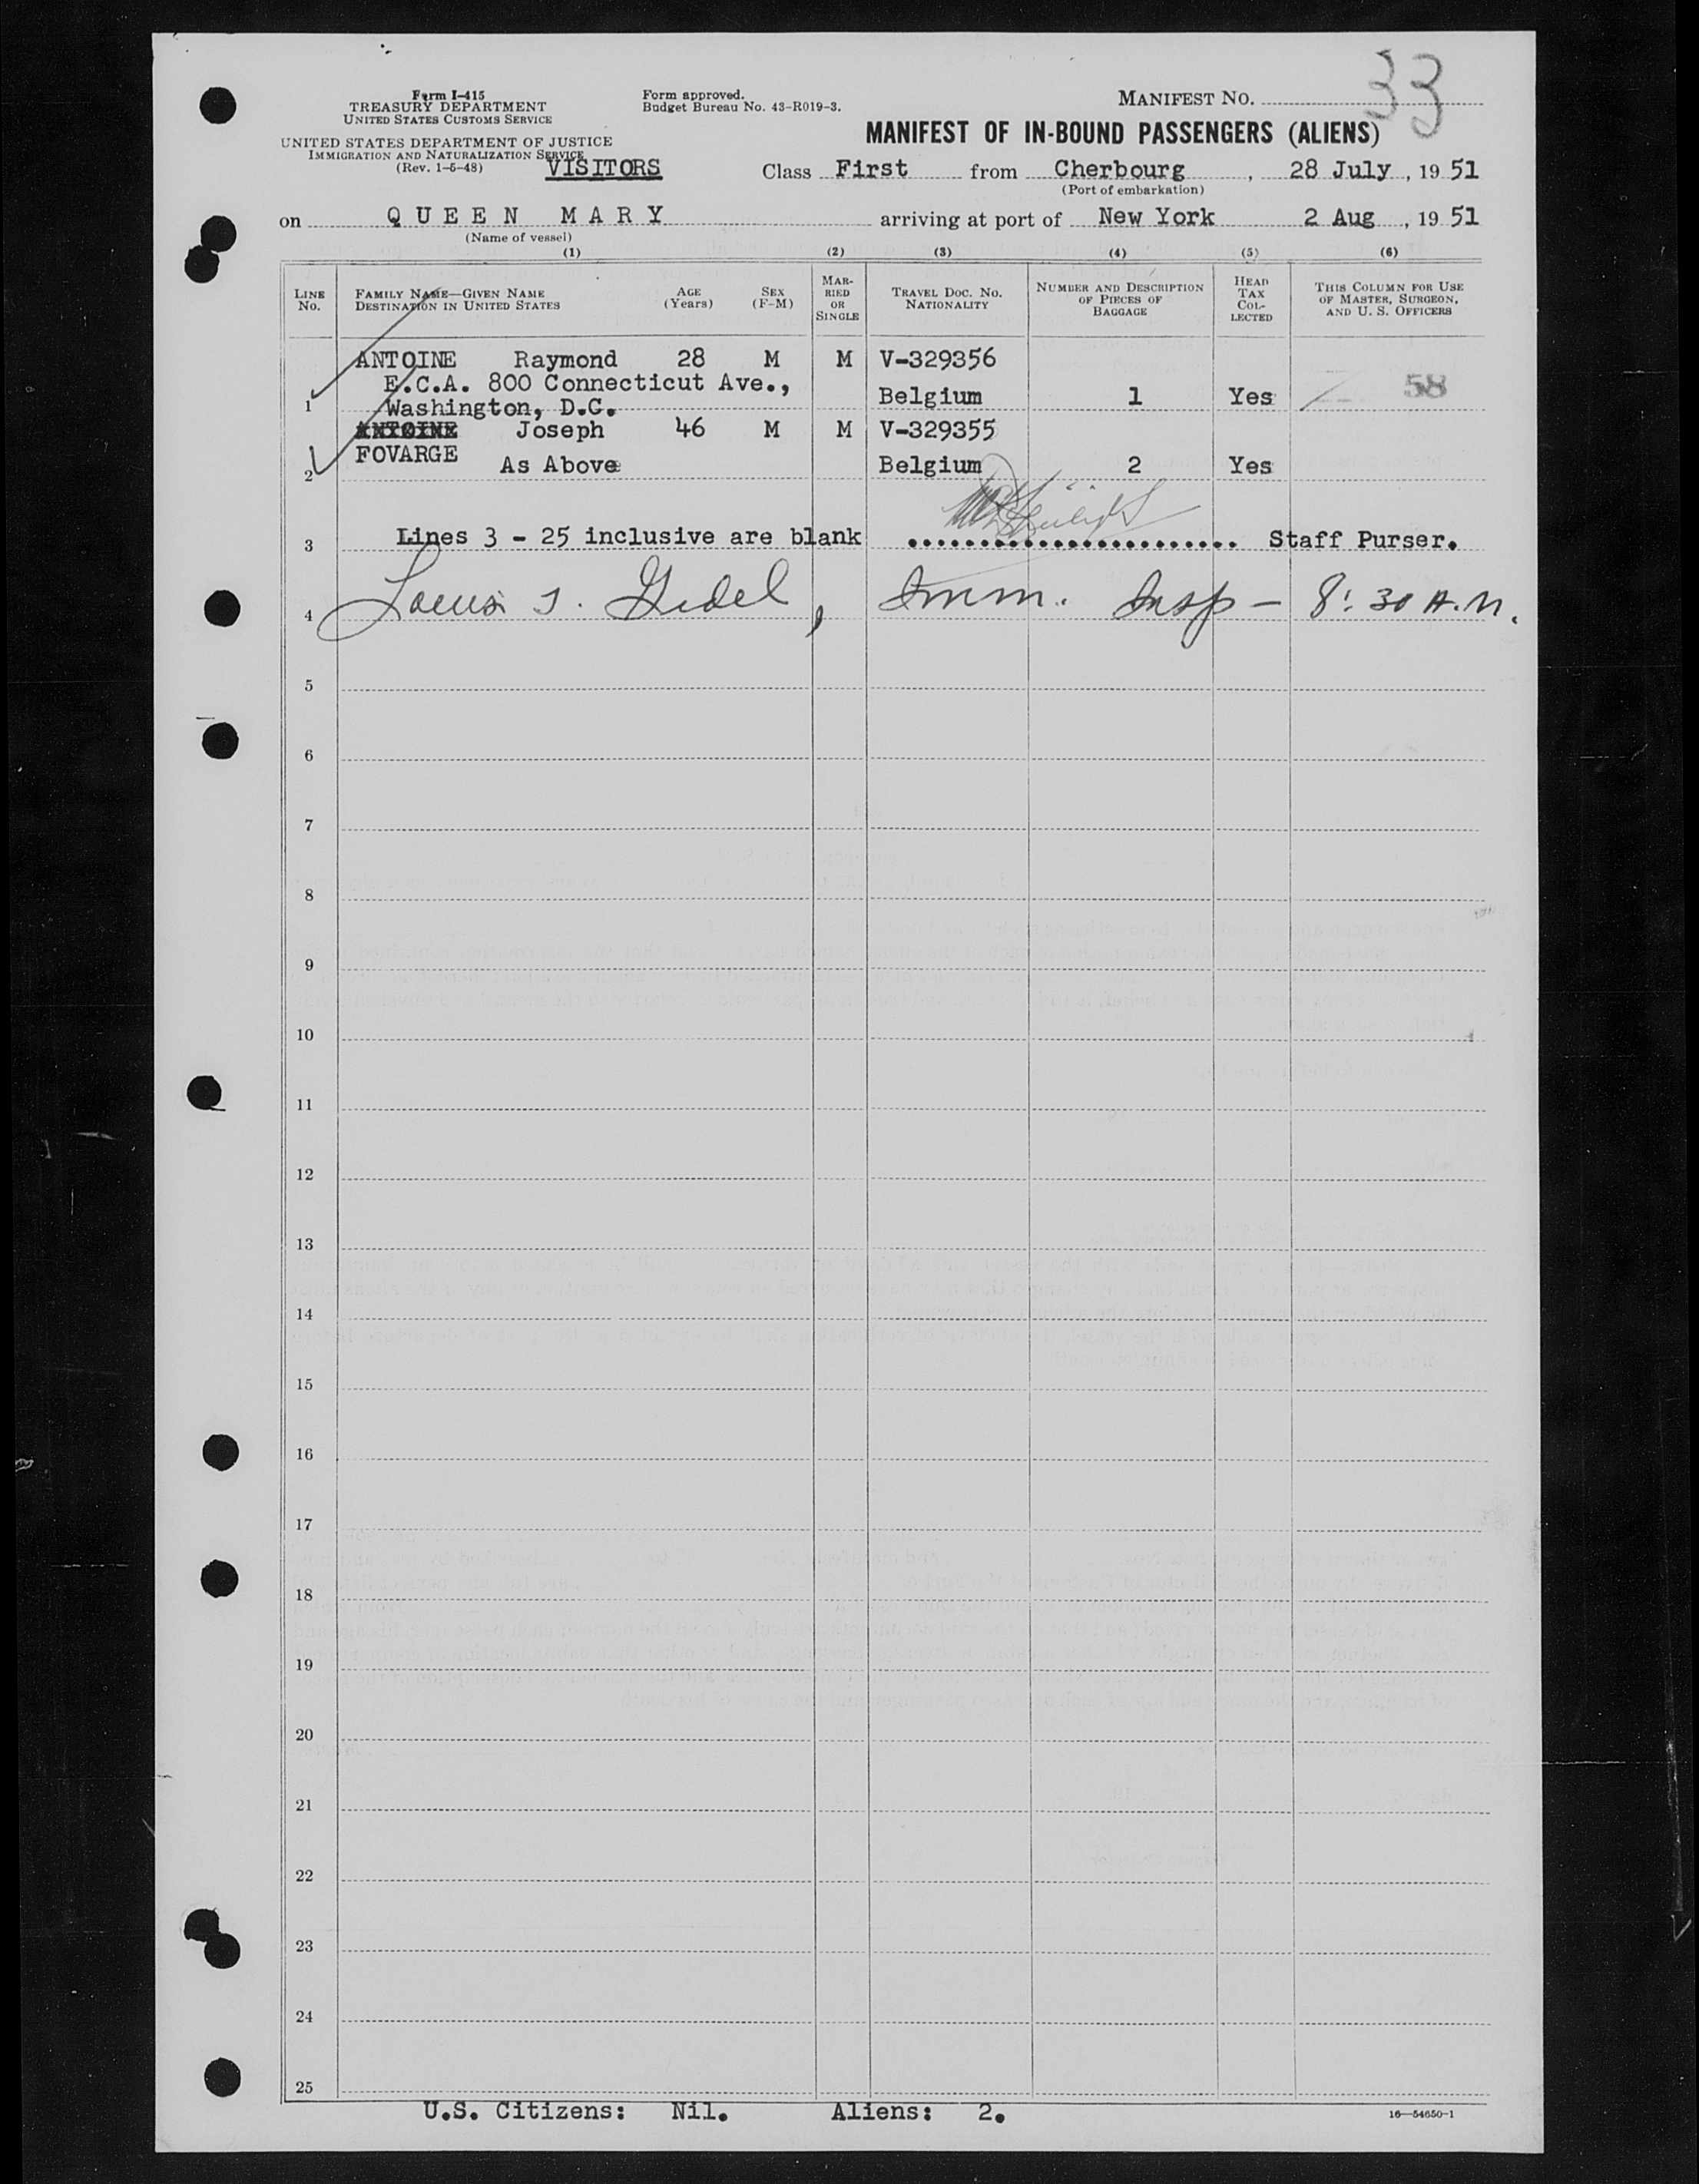 33
Form I-415
TREASURY DEPARTMENT
UNITED STATES CUSTOMS SERVICE
UNITED STATES DEPARTMENT OF JUSTICE
IMMIGRATION AND NATURALIZATION SERVICE
(Rev. 1-5-48)
VISITORS
Form approved.
Budget Bureau No. 43-R019-3.
MANIFEST NO.
MANIFEST OF IN-BOUND PASSENGERS (ALIENS)
Class First from Cherbourg, 28 July, 1951
(Port of embarkation)
on QUEEN MARY arriving at port of New York 2 Aug, 1951
(Name of vessel)
(1) (2) (3) (4) (5) (6)
LINE No.
FAMILY NAME—GIVEN NAME
DESTINATION IN UNITED STATES
AGE (Years)
SEX (F-M)
MARRIED OR SINGLE
TRAVEL DOC. NO. NATIONALITY
NUMBER AND DESCRIPTION OF PIECES OF BAGGAGE
HEAD TAX COLLECTED
THIS COLUMN FOR USE OF MASTER, SURGEON, AND U. S. OFFICERS
ANTOINE Raymond 28 M M V-329356
E.C.A. 800 Connecticut Ave.,
1 Washington, D.C. Belgium 1 Yes 58
ANTOINE Joseph 46 M M V-329355
FOVARGE
2 As Above Belgium 2 Yes
3 Lines 3 - 25 inclusive are blank ........................ Staff Purser.
4 Imm. Insp - 8:30 A.M.
5
6
7
8
9
10
11
12
13
14
15
16
17
18
19
20
21
22
23
24
25
U.S. Citizens: Nil. Aliens: 2.
16—54650-1